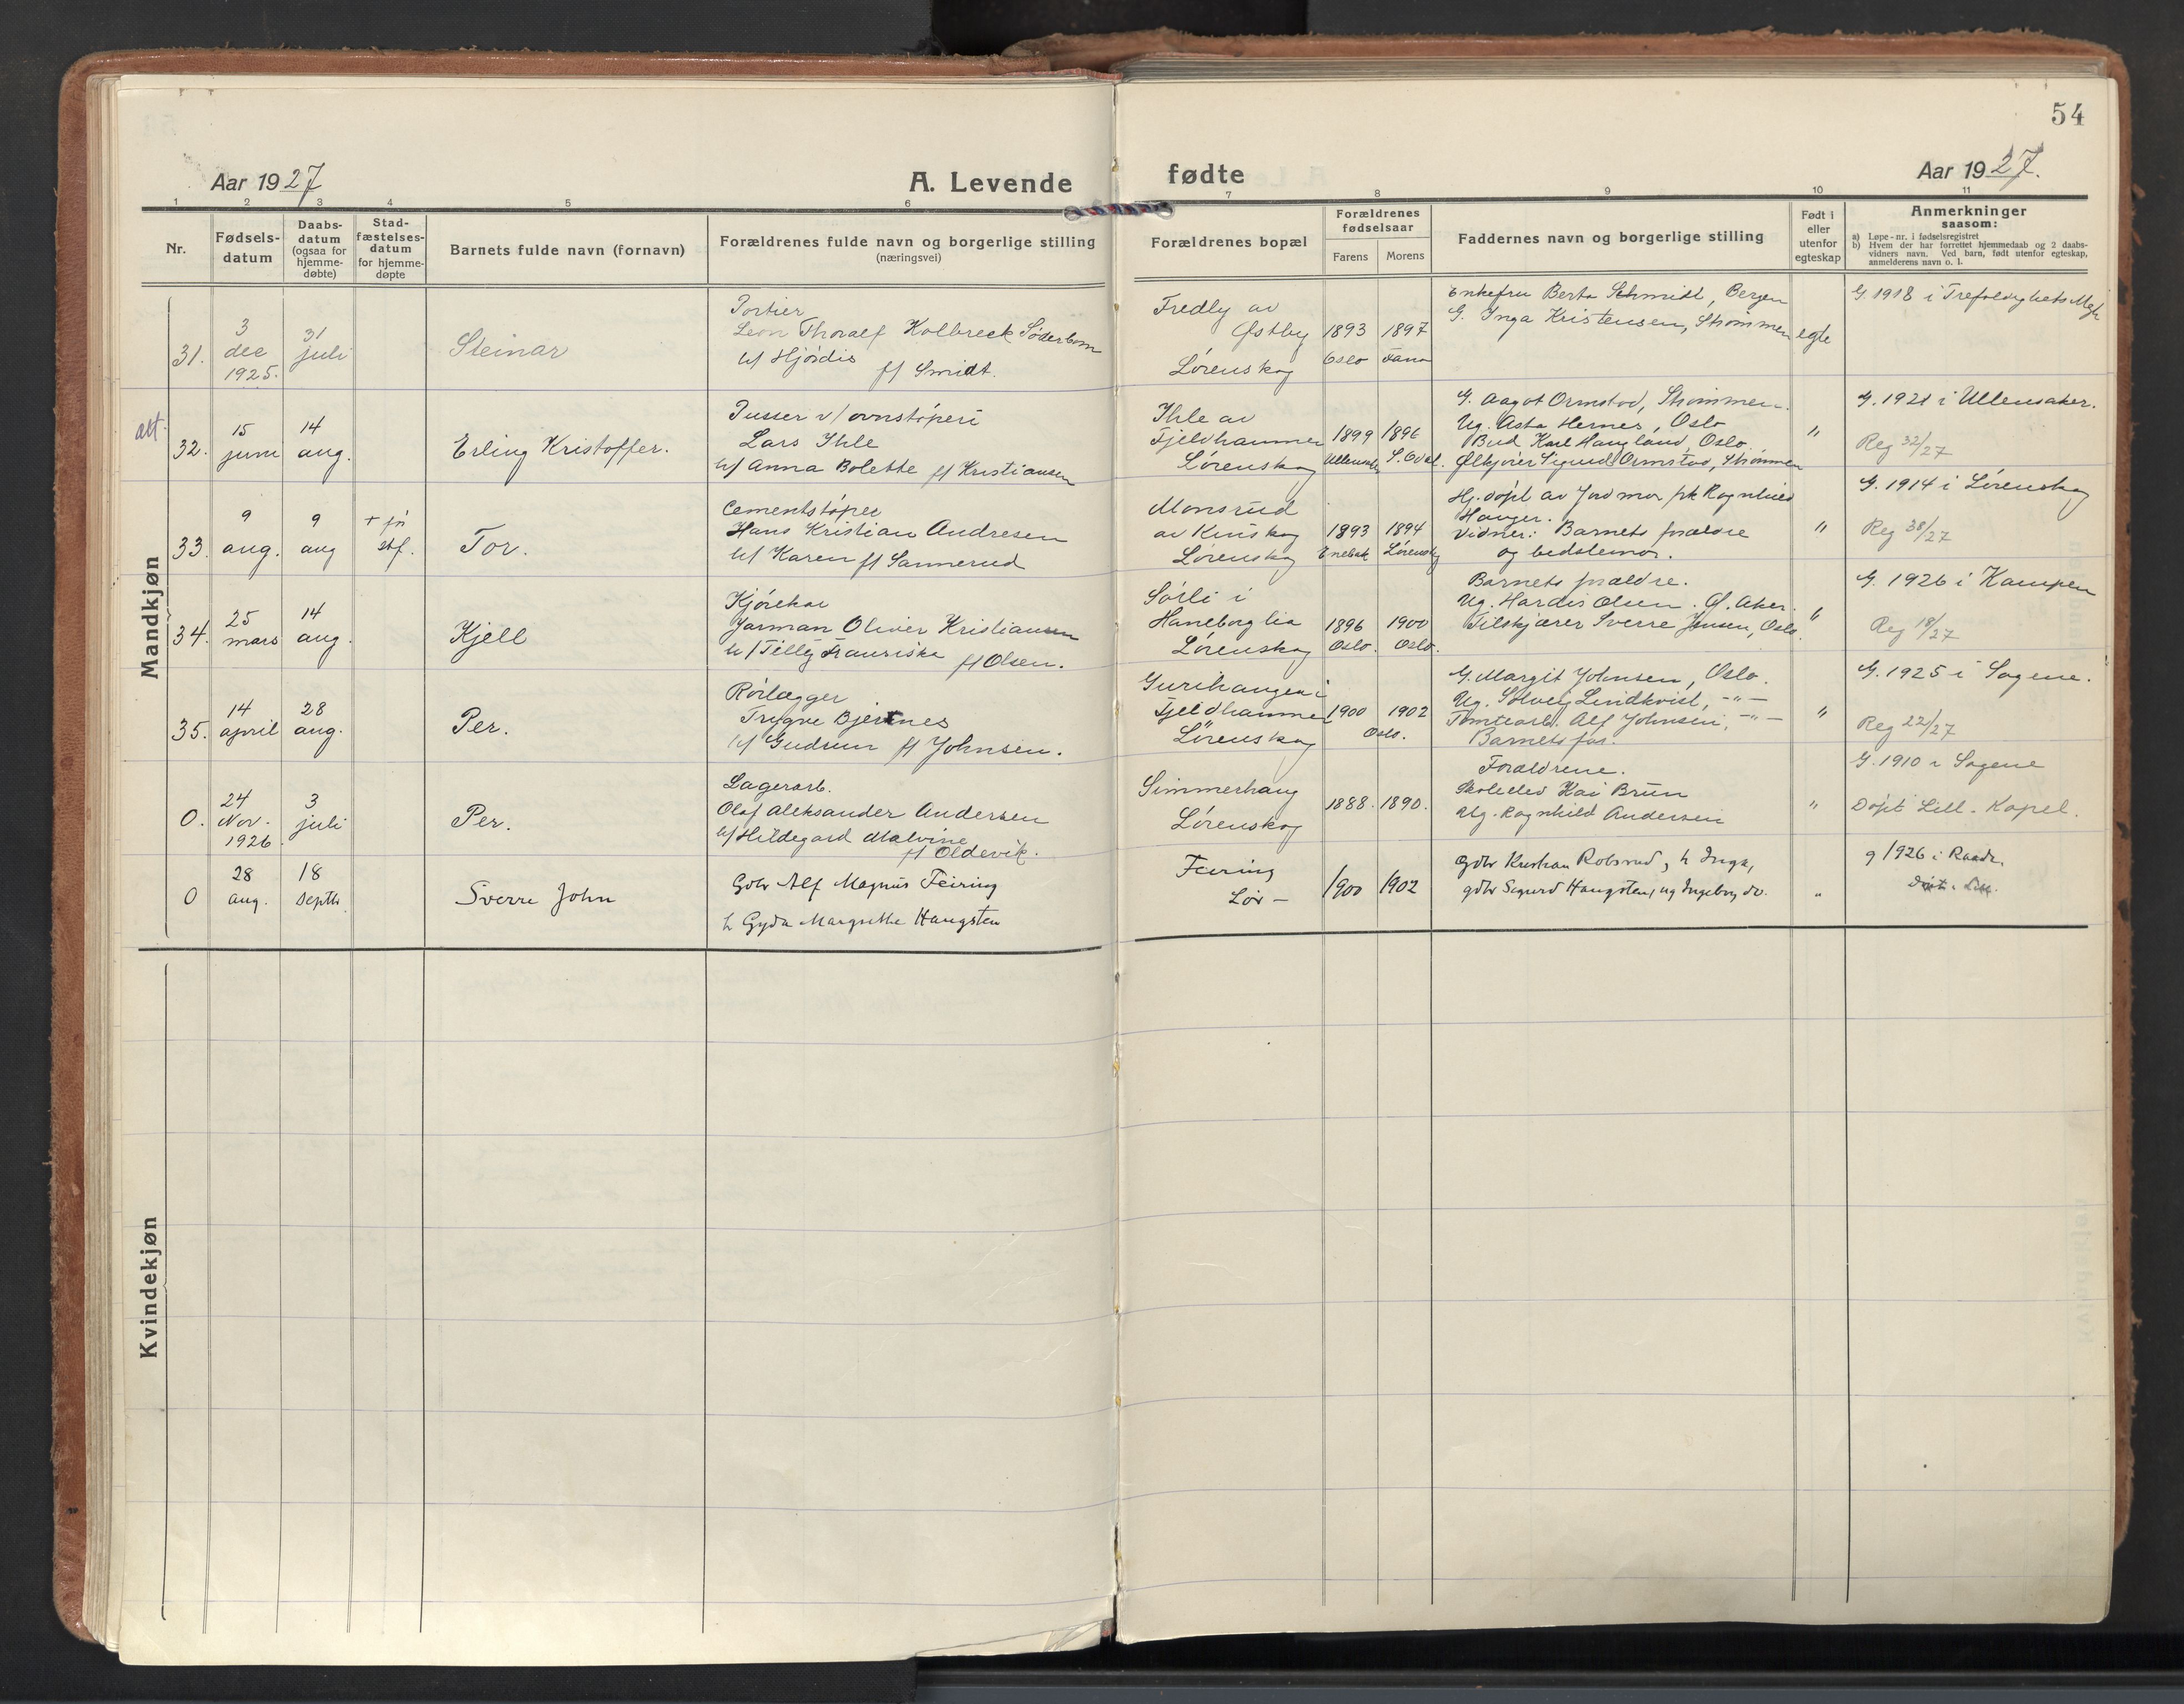 54
Aar 1927
A. Levende fødte
Aar 1927.
1 2 3 4 5 6 7 8 9 10 11
Nr.
Fødsels-
datum
Daabs-
datum
(ogsaa for
hjemme-
døbte)
Stad-
fæstelses-
datum
for hjemme-
døpte
Barnets fulde navn (fornavn)
Forældrenes fulde navn og borgerlige stilling
(næringsvei)
Forældrenes bopæl
Forældrenes
fødselsaar
Farens
Morens
Faddernes navn og borgerlige stilling
Født i
eller
utenfor
egteskap
Anmerkninger
saasom:
a) Løpe-nr. i fødselsregistret
b) Hvem der har forrettet hjemmedaab og 2 daabs-
vidners navn. Ved barn, født utenfor egteskap,
anmelderens navn o. l.
Mandkjøn
31.
3
dec
1925.
31
juli
Steinar
Portier
Leon Thoralf Kolbreck Søderbom
h/ Hjørdis
f/ Smidt.
Fredly av
Østby
Lørenskog
1893
Oslo
1897
Fana
Enkefru Berta Schmidt, Bergen
G. Inga Kristensen, Strømmen
egte
G. 1918 i Trefoldighets Mgh
att.
32.
15
juni
14
aug.
Erling Kristoffer.
Pusser v/ ovnstøperi
Lars Ihle
h/ Anna Bolette f/ Kristiansen
Ihle av
Fjeldhammer
Lørenskog
1899
Ullensaker
1896
S. Odal.
G. Aagot Ormstad, Strømmen.
Ug. Asta Hernes, Oslo
Bud Karl Haugland, Oslo.
Ølkjører Sigurd Ormstad, Strømmen
"
G. 1921 i Ullensaker.
Reg 32/27
33.
9
aug.
9
aug
+ før
stf.
Tor.
Cementstøper
Hans Kristian Andresen
h/ Karen f/ Sannerud
Monsrud
av Kurskog
Lørenskog
1893
Enebak
1894
Lørenskog
Hj. døpt av Jordmor frk Ragnhild
Hauger.
Vidner: Barnets forældre
og bedstemor.
"
G. 1914 i Lørenskog
Reg 38/27
34.
25
mars
14
aug.
Kjell
Kjørekar
Jarman Olivier Kristiansen
h/ Tilly Fransiska f/ Olsen.
Sørli i
Haneborglia
Lørenskog
1896
Oslo.
1900
Oslo.
Barnets forældre.
Ug. Hardis Olsen. Ø. Aker.
Tilskjærer Sverre Jensen, Oslo.
"
G. 1926 i Kampen
Reg 18/27
35.
14
april
28
aug.
Per.
Rørlægger
Trygve Bjertnes
h/ Gudrun f/ Johnsen.
Gurihaugen i
Fjeldhammer
Lørenskog
1900
1902
Oslo.
G. Margit Johnsen, Oslo.
Ug. Solveig Lindkvist, -"-
Tomtearb. Alf Johnsen, -"-
Barnets far.
"
G. 1925 i Sagene.
Reg 22/27
0.
24
Nov.
1926.
3
juli
Per.
Lagerarb.
Olaf Aleksander Andersen
h/ Hildegard Malvine
f/ Oldevik.
Simmerhaug
Lørenskog
1888.
1890.
Forældrene.
Skoleelev Kai Brun
Ug. Ragnhild Andersen
"
G. 1910 i Sagene
Døpt Lill. Kapel.
0
28
aug.
18
septb.
Sverre John
Gdbr Alf Magnus Feiring
h Gyda Margrethe Haugsten
Feiring
Lør -
1900
1902
Gdbr Kristian Robsrud, h Inga,
gdbr Sigurd Haugsten, ug Ingeborg do.
"
g 1926 i Raade.
Døpt i Lill.
Kvindekjøn